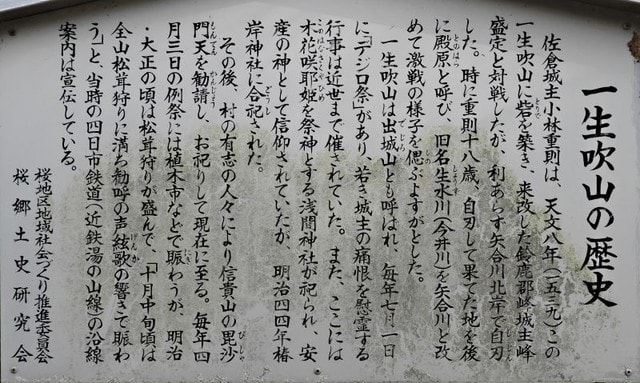 一生吹山の歴史
佐倉城主小林重則は、天文八年(一五三九)この
一生吹山に砦を築き、来攻した鈴鹿郡峰城主峰
盛定と対戦したが、利あらず矢合川北岸で自刃
した。時に重則十八歳、自刃して果てた地を後
に殿原と呼び、旧名生水川(今井川)を矢合川と改
めて激戦の様子を偲ぶよすがとした。
一生吹山は出城山とも呼ばれ、毎年七月一日
に「デジロ祭」があり、若き城主の痛恨を慰霊する
行事は近世まで催されていた。また、ここには
木花咲耶姫を祭神とする浅間神社が祀られ、安
産の神として信仰されていたが、明治四四年椿
岸神社に合祀された。
その後、村の有志の人々により信貴山の毘沙
門天を勧請し、お祀りして現在に至る。毎年四
月三日の例祭には植木市などで賑わうが、明治
・大正の頃は松茸狩りが盛んで、「十月中旬頃は
全山松茸狩りに満ち歓呼の声絃歌の響きで賑わ
う」と、当時の四日市鉄道(近鉄湯の山線)の沿線
案内は宣伝している。
桜地区地域社会づくり推進委員会
桜郷土史研究会